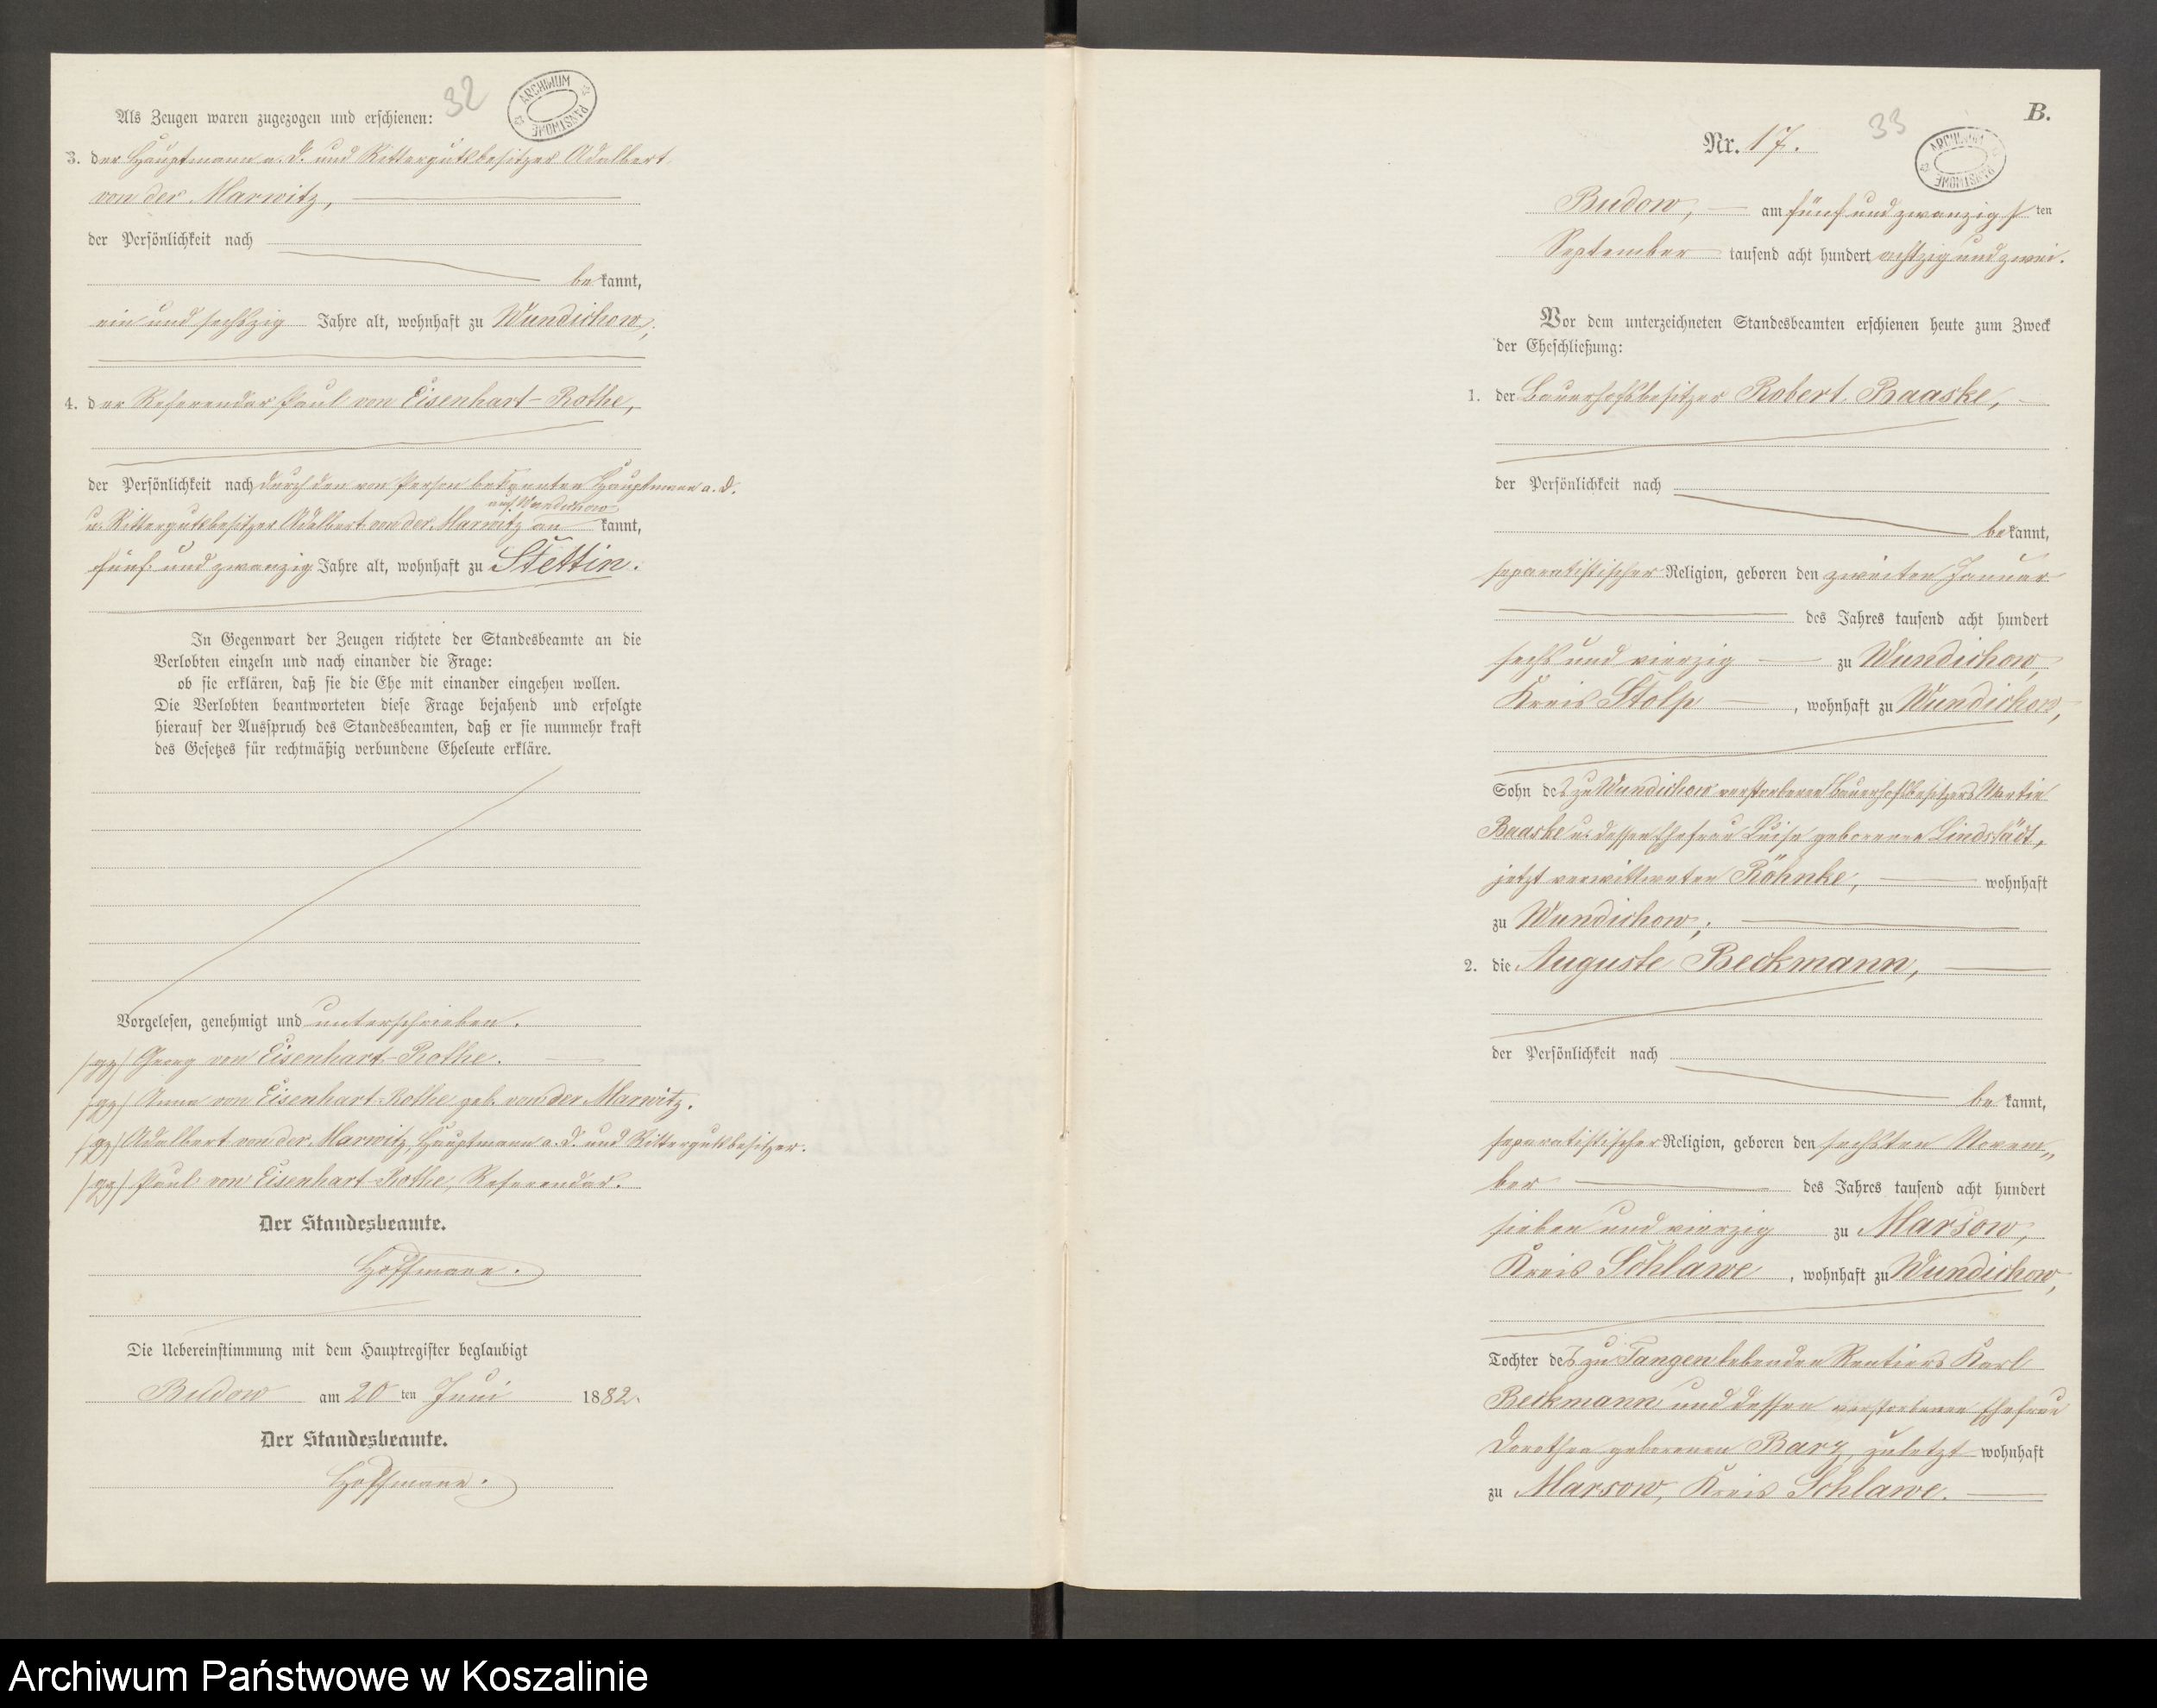 32
ARCHIWUM PAŃSTWOWE
Als Zeugen waren zugezogen und erschienen:
3. der Hauptmann a. D. und Rittergutsbesitzer Adalbert
von der Marwitz,
der Persönlichkeit nach
bekannt,
ein und sechszig Jahre alt, wohnhaft zu Wundichow;
4. der Referendar Paul von Eisenhart-Rothe,
der Persönlichkeit nach durch den von Person bekannten Hauptmann a. D.
auf Wundichow
u. Rittergutsbesitzer Adalbert von der Marwitz an kannt,
fünf und zwanzig Jahre alt, wohnhaft zu Stettin.
In Gegenwart der Zeugen richtete der Standesbeamte an die
Verlobten einzeln und nach einander die Frage:
ob sie erklären, daß sie die Ehe mit einander eingehen wollen.
Die Verlobten beantworteten diese Frage bejahend und erfolgte
hierauf der Ausspruch des Standesbeamten, daß er sie nunmehr kraft
des Gesetzes für rechtmäßig verbundene Eheleute erkläre.
Vorgelesen, genehmigt und unterschrieben.
/gz/ Georg von Eisenhart-Rothe.
/gz/ Anna von Eisenhart-Rothe geb. von der Marwitz.
/gz/ Adalbert von der Marwitz, Hauptmann a. D. und Rittergutsbesitzer.
/gz/ Paul von Eisenhart-Rothe, Referendar.
Der Standesbeamte.
Hoffmann.
Die Uebereinstimmung mit dem Hauptregister beglaubigt
Budow am 20 ten Juni 1882.
Der Standesbeamte.
Hoffmann.
B.
33
ARCHIWUM PAŃSTWOWE
Nr. 17.
Budow, am fünf und zwanzigs ten
September tausend acht hundert achtzig und zwei.
Vor dem unterzeichneten Standesbeamten erschienen heute zum Zweck
der Eheschließung:
1. der Bauerhofsbesitzer Robert Baaske,
der Persönlichkeit nach
bekannt,
separatistischer Religion, geboren den zweiten Januar
des Jahres tausend acht hundert
sechs und vierzig zu Wundichow,
Kreis Stolp, wohnhaft zu Wundichow,
Sohn des zu Wundichow verstorbenen Bauerhofsbesitzers Martin
Baaske u. dessen Ehefrau Luise geborenen Lindstädt,
jetzt verwittweten Röhnke, wohnhaft
zu Wundichow;
2. die Auguste Beckmann,
der Persönlichkeit nach
bekannt,
separatistischer Religion, geboren den sechsten Novem„
ber des Jahres tausend acht hundert
sieben und vierzig zu Marsow,
Kreis Schlawe, wohnhaft zu Wundichow,
Tochter des zu Tangen lebenden Rentiers Karl
Beckmann und dessen verstorbenen Ehefrau
Dorothea geborenen Barz, zuletzt wohnhaft
zu Marsow, Kreis Schlawe.
Archiwum Państwowe w Koszalinie